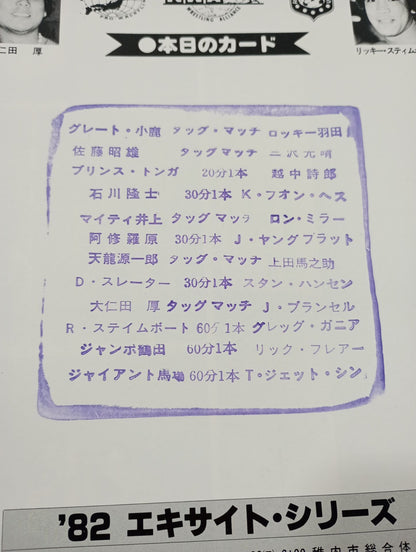 仁田 厚
リッキー・スティム
●本日のカード
グレート・小鹿 タッグ・マッチ ロッキー羽田
佐藤昭雄 タッグマッチ 三沢光晴
プリンス・トンガ 20分1本 越中詩郎
石川隆士 30分1本 K・フオン・ヘス
マイティ井上 タッグマッチ ロン・ミラー
阿修羅原 30分1本 J・ヤングブラット
天龍源一郎 タッグ・マッチ 上田馬之助
D・スレーター 30分1本 スタン・ハンセン
大仁田 厚 タッグマッチ J・ブランゼル
R・ステイムボート 60分1本 グレッグ・ガニア
ジャンボ鶴田 60分1本 リック・フレアー
ジャイアント馬場 60分1本 T・ジェット・シン
'82 エキサイト・シリーズ
稚内市総合体